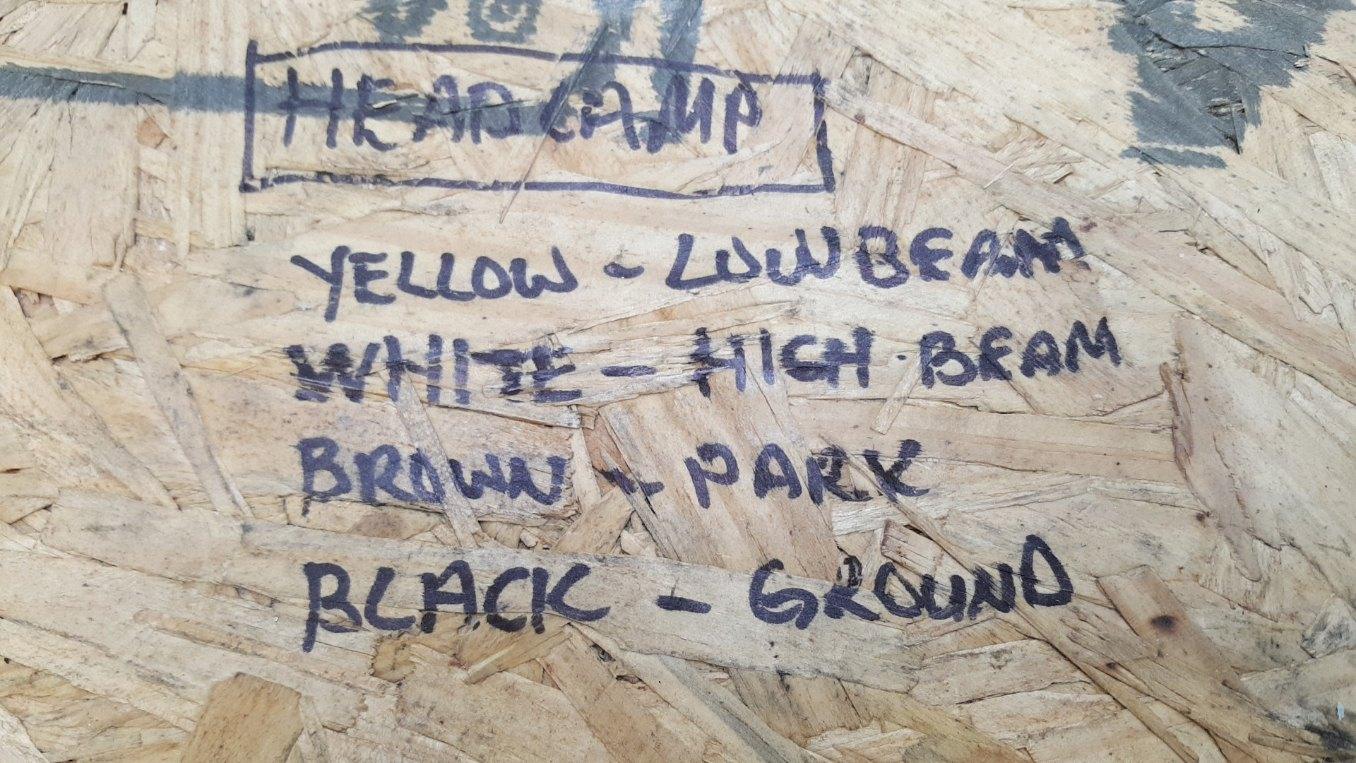 HEADLAMP
YELLOW - LOW BEAM
WHITE - HIGH BEAM
BROWN - PARK
BLACK - GROUND